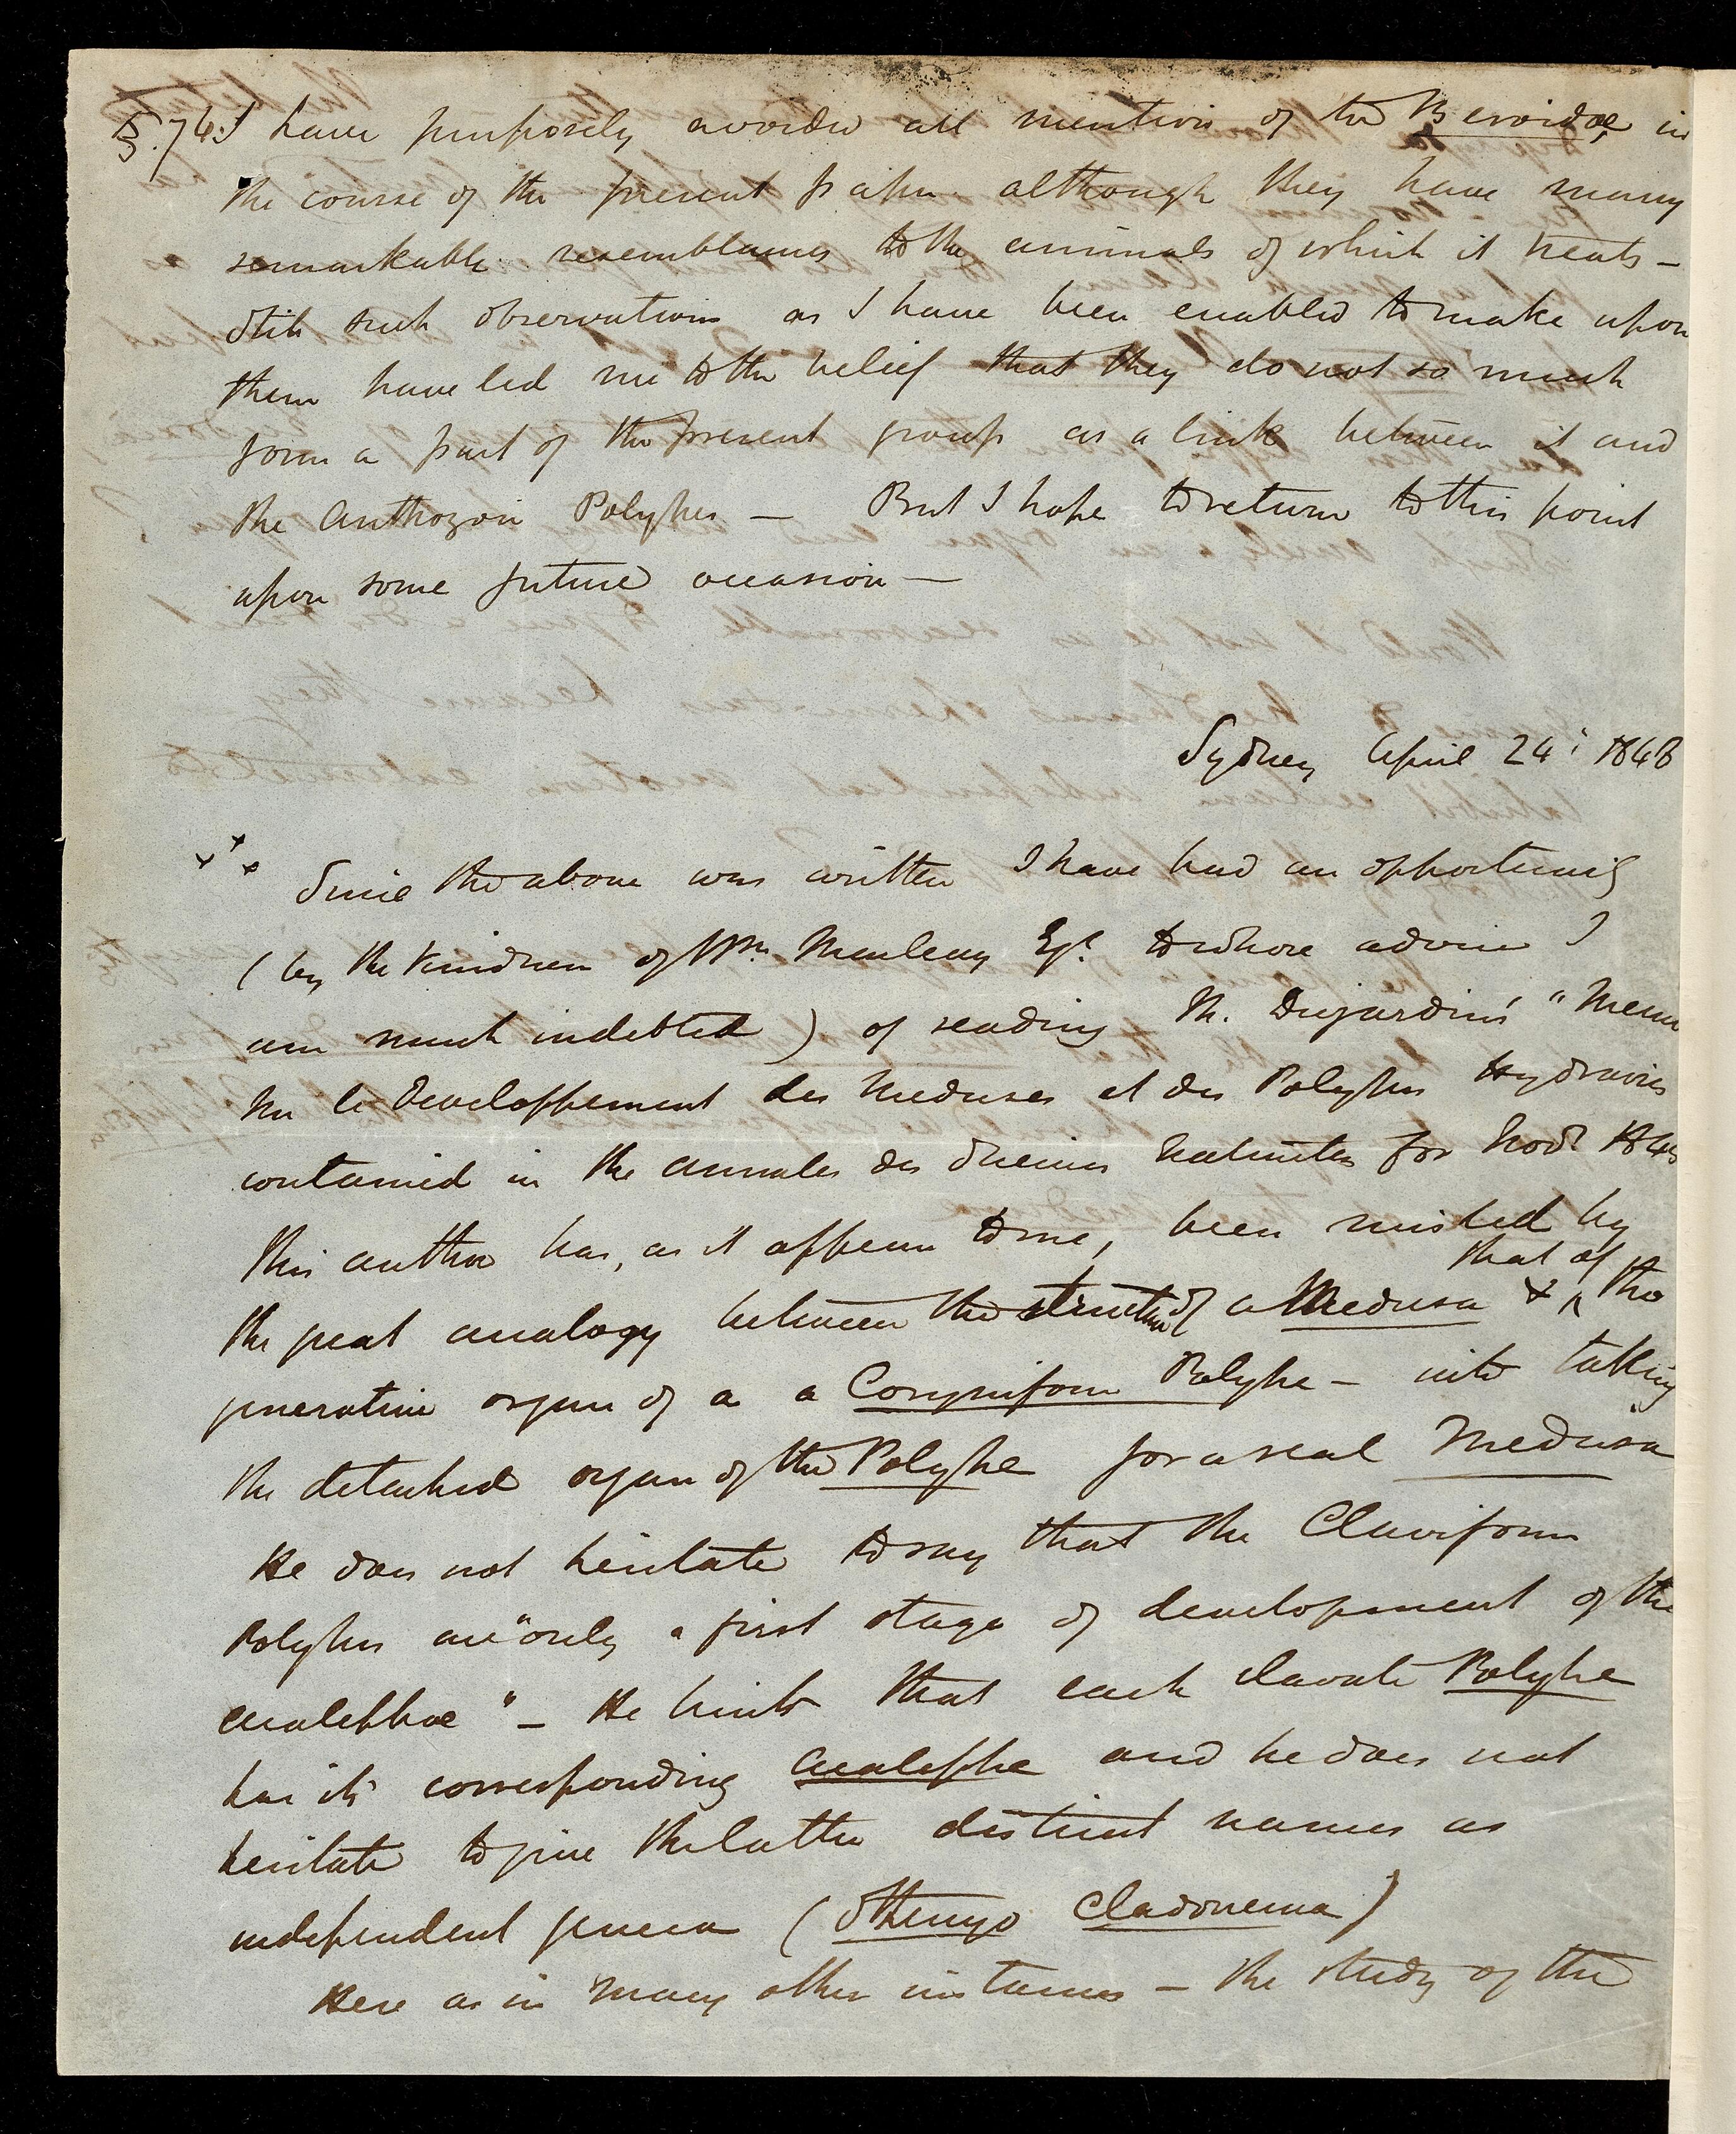 §.74. I have purposely avoided all mention of the Beroidae in
the course of the present paper although they have many
remarkable resemblances to the animals of which it treats —
Still such observations as I have been enabled to make upon
them have led me to the belief that they do not so much
form a part of the present group as a link between it and
the Anthozoic Polypes — But I hope to return to this point
upon some future occasion —
Sydney April 24: 1848
Since the above was written I have had an opportunity
(by the kindness of Wm. Macleay Esqr. to whose advice I
am much indebted) of reading M. Dujardin's "Mem
sur le developpement des Meduses et des Polypes Hydraires
contained in the Annales des Sciences Naturelles for Novr. 1845
This author has, as it appears to me, been misled by
the great analogy between the structure of a Medusa & that of the
generative organ of a a Coryniform Polype — into taking
the detached organ of the Polype for a real Medusa
He does not hesitate to say that the Claviform
Polypes are "only a first stage of development of the
Acalephae" — He hints that each clavate Polype
has its corresponding Acalephe and he does not
hesitate to give the latter distinct names as
independent genera (Sthenyo Cladonema)
Here as in many other instances — the study of the